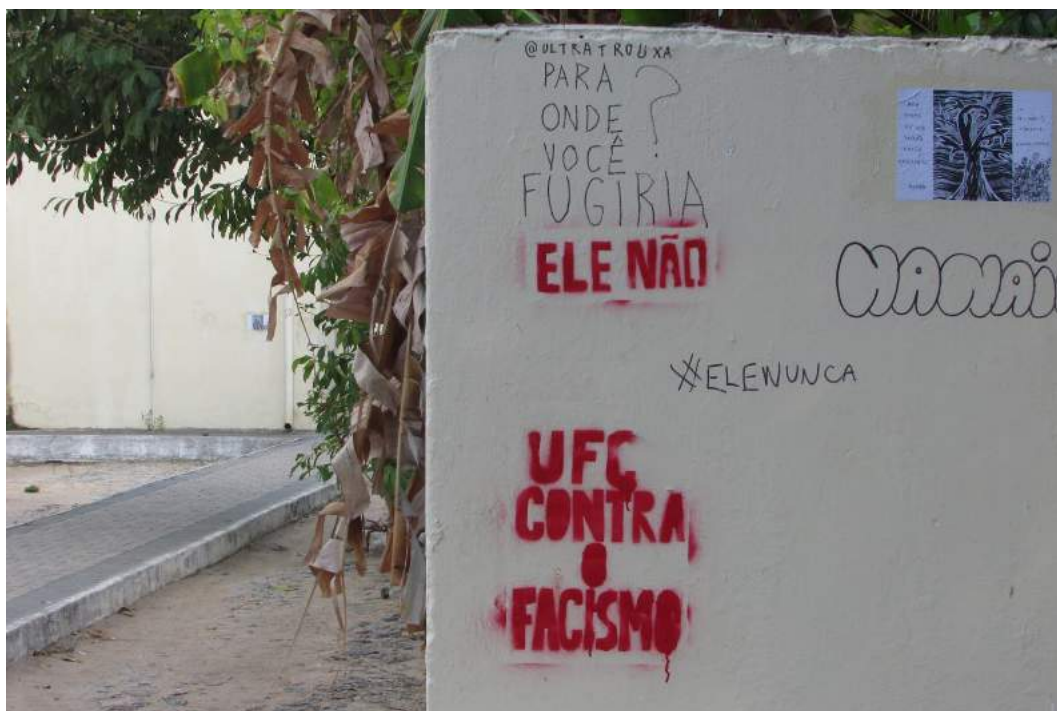 @ULTRATROUXA
PARA
ONDE
VOCÊ
FUGIRIA ?
ELE NÃO
NANAI
#ELENUNCA
UFC
CONTRA
O
FACISMO